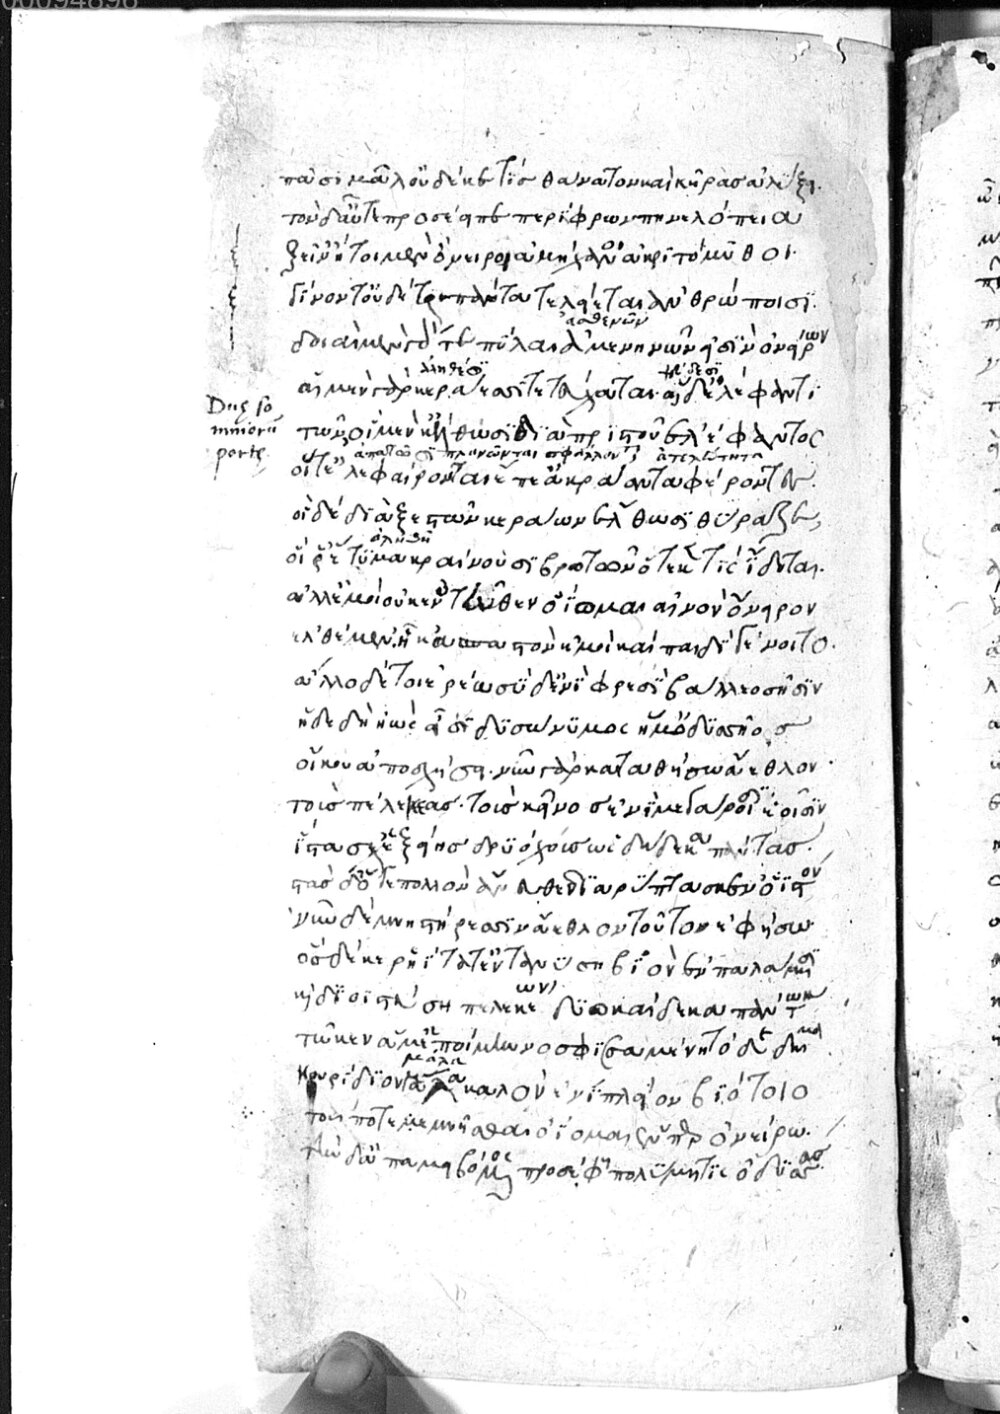 00094898
πᾶσι μάλ' οὐδέ κέ τις θάνατον καὶ κῆρας ἀλύξει.
τὸν δ' αὖτε προσέειπε περίφρων πηνελόπεια
ξεῖν' ἤτοι μὲν ὄνειροι ἀμήχανοι ἀκριτόμυθοι.
γίνοντ' οὐδέ τι πάντα τελείεται ἀνθρώποισι.
ἀσθενῶν
δοιαὶ μὲν γάρ τε πύλαι ἀμενηνῶν εἰσὶν ὀνείρων
ἀληθέσι ψεύδεσι
αἱ μὲν γὰρ κεράεσσι τετεύχαται αἱ δ' ἐλέφαντι
Duę so
mniorũ
portę
τῶν οἳ μέν κ' ἔλθωσι διὰ πριστοῦ ἐλέφαντος
ἀπατῶσι πλανῶνται σφάλλοντι ἀτελεύτητα
οἵ τ' ἐλεφαίρονται ἔπε' ἀκράαντα φέροντες.
οἱ δὲ διὰ ξεστῶν κεράων ἔλθωσι θύραζε,
ἀληθῆ
οἵ ῥ' ἔτυμα κραίνουσι βροτῶν ὅτε κέν τις ἴδηται.
ἀλλ' ἐμοὶ οὐκ ἐντεῦθεν ὀΐομαι αἰνὸν ὄνειρον
ἐλθέμεν. ἦ κ' ἀσπαστὸν ἐμοὶ καὶ παιδὶ γένοιτο.
ἄλλο δέ τοι ἐρέω σὺ δ' ἐνὶ φρεσὶ βάλλεο σῇσιν
ἥδε δὴ ἠὼς εἶσι δυσώνυμος ἥ μ' ὀδυσῆος
οἴκου ἀποσχήσει. νῦν γὰρ καταθήσω ἄεθλον.
τοὺς πελέκεας. τοὺς κεῖνος ἐνὶ μεγάροισιν ἑοῖσιν
ἵστασχ' ἑξείης δρυόχους ὡς δώδεκα πάντας.
στὰς δ' ὅ γε πολλὸν ἄνευθε διαρρίπτασκεν ὀϊστόν
νῦν δὲ μνηστήρεσσιν ἄεθλον τοῦτον ἐφήσω
ὃς δέ κε ῥηΐτατ' ἐντανύσῃ βιὸν ἐν παλάμῃσι
καὶ διοϊστεύσῃ πελέκεων δυοκαίδεκα πάντων
τῷ κεν ἅμ' ἑσποίμην νοσφισσαμένη τόδε δῶμα
μάλα
κουρίδιον μάλα καλὸν ἐνίπλειον βιότοιο
τοῦ ποτε μεμνήσεσθαι ὀΐομαι ἔν περ ὀνείρῳ.
τὴν δ' ἀπαμειβόμενος προσέφη πολύμητις ὀδυσσεύς